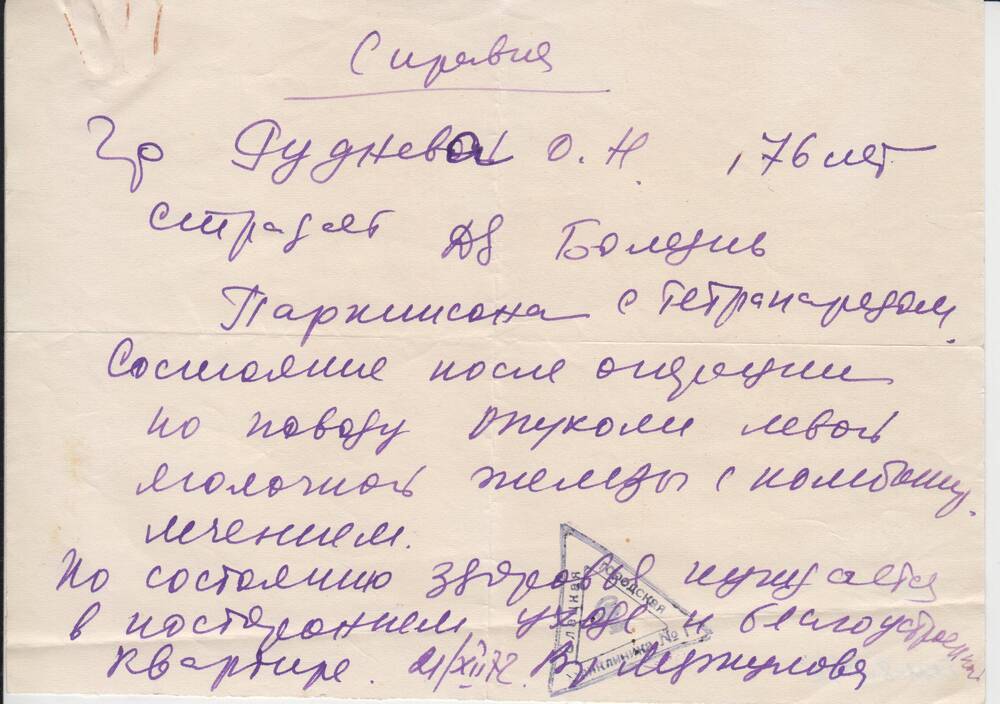 Справка
Гр Руднева О. Н. , 76 лет
страдает Дз Болезнь
Паркинсона с тетрапарезом.
Состояние после операции
по поводу опухоли левой
молочной железы с комбинир.
лечением.
По состоянию здоровья нуждается
в постороннем уходе и благоустроенной
квартире. 21/XII 72. Вр
городская
поликлиника №